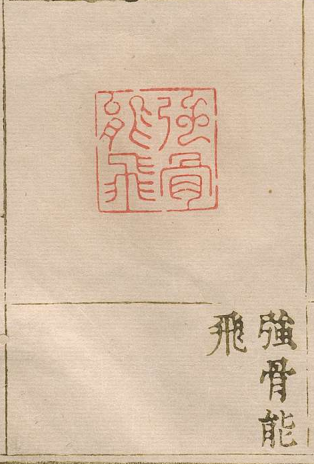 強骨
能飛
強骨能
飛